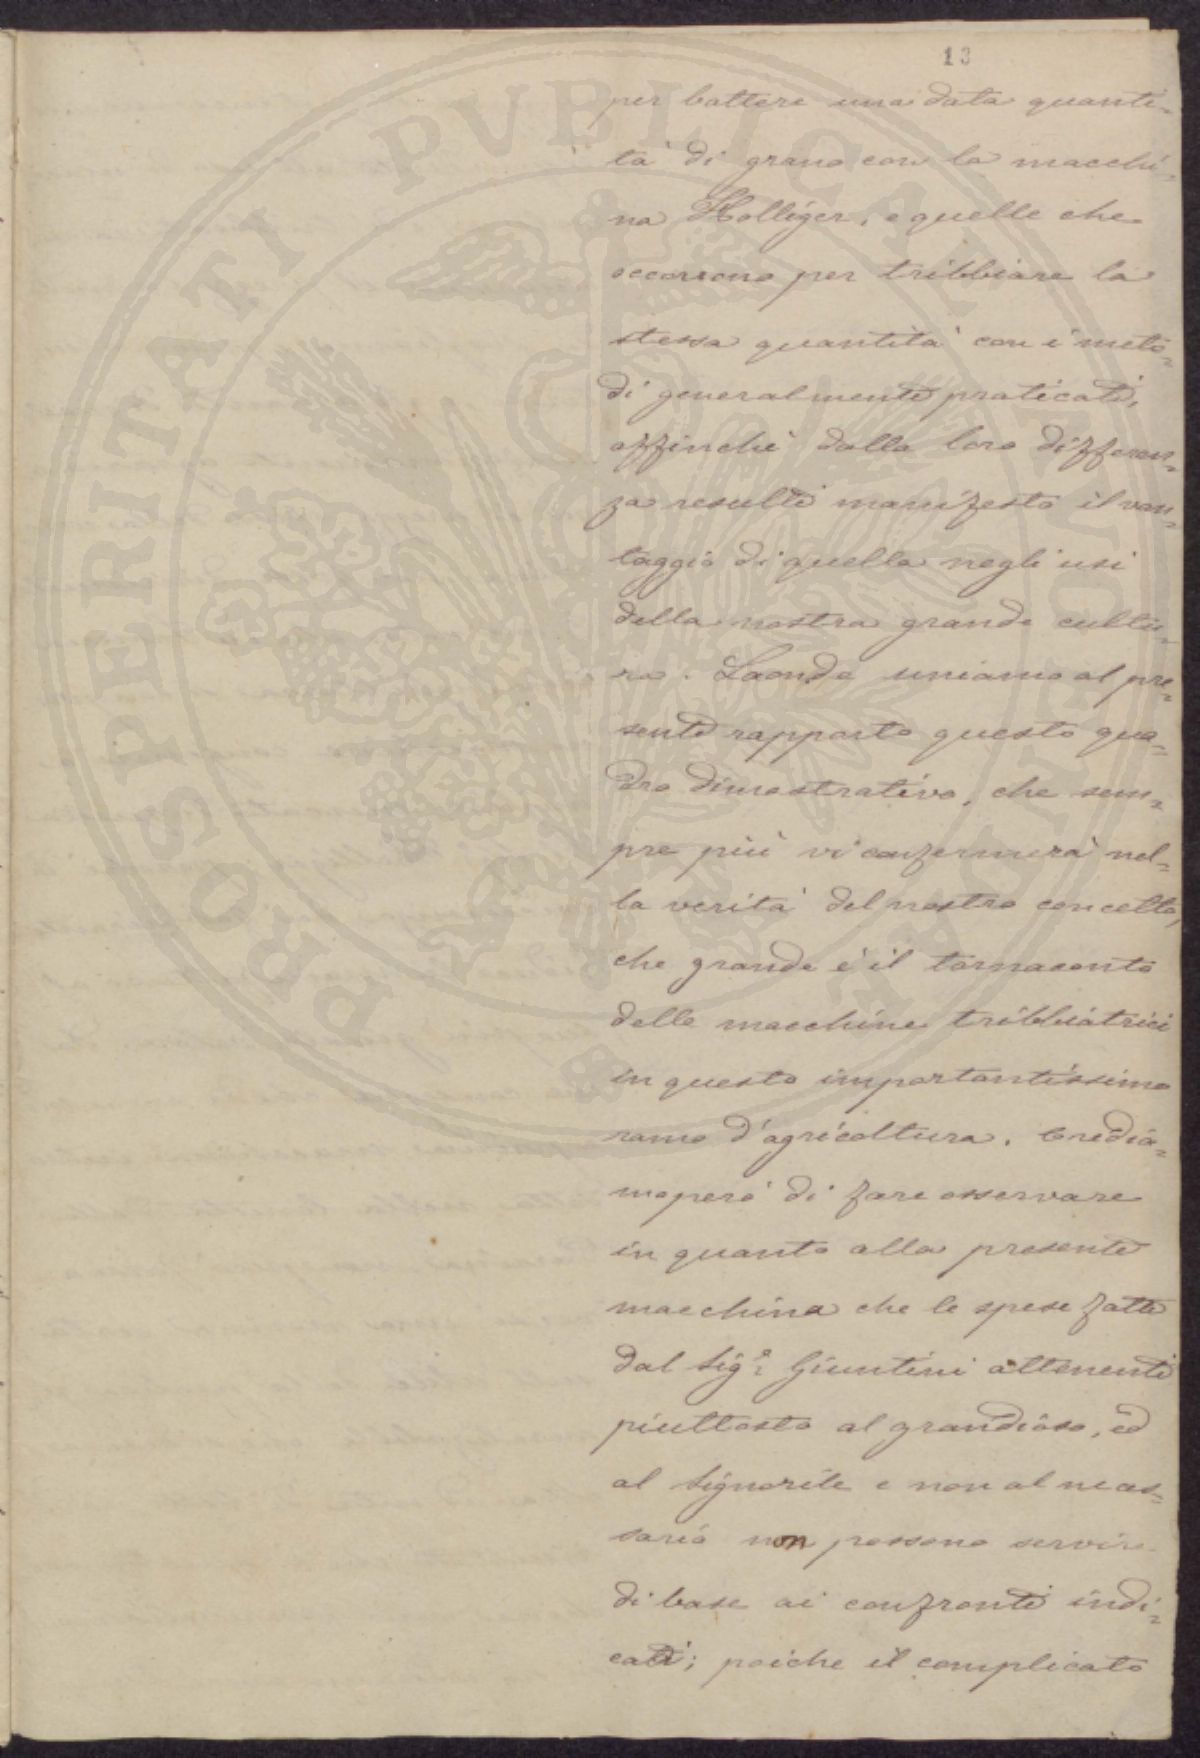 13
per battere una data quanti=
tà di grano con la macchi=
na Holliger, e quelle che
occorrono per tribbiare la
stessa quantità con i meto=
di generalmente praticati,
affinchè dalla loro differen=
za resulti manifesto il van=
taggio di quella negli usi
della nostra grande cultu=
ra. Laonde uniamo al pre=
sente rapporto questo qua=
dro dimostrativo, che sem=
pre più vi confermerà nel=
la verità del nostro concetto,
che grande è il tornaconto
delle macchine tribbiatrici
in questo importantissimo
ramo d'agricoltura. Credia=
mo però di fare osservare
in quanto alla presente
macchina che le spese fatte
dal Sigr. Giuntini attenenti
piuttosto al grandioso, ed
al Signorile e non al neces=
sario non possono servire
di base ai confronti indi=
cati; poiche il complicato
PROSPERITATI PVBLICAE